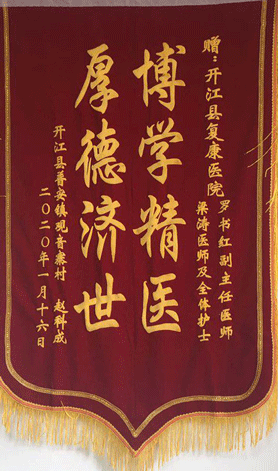 赠：开江县复康医院
罗书红副主任医师
梁涛医师及全体护士
博学精医
厚德济世
开江县普安镇观音寨村 赵科成
二〇二〇年一月十六日